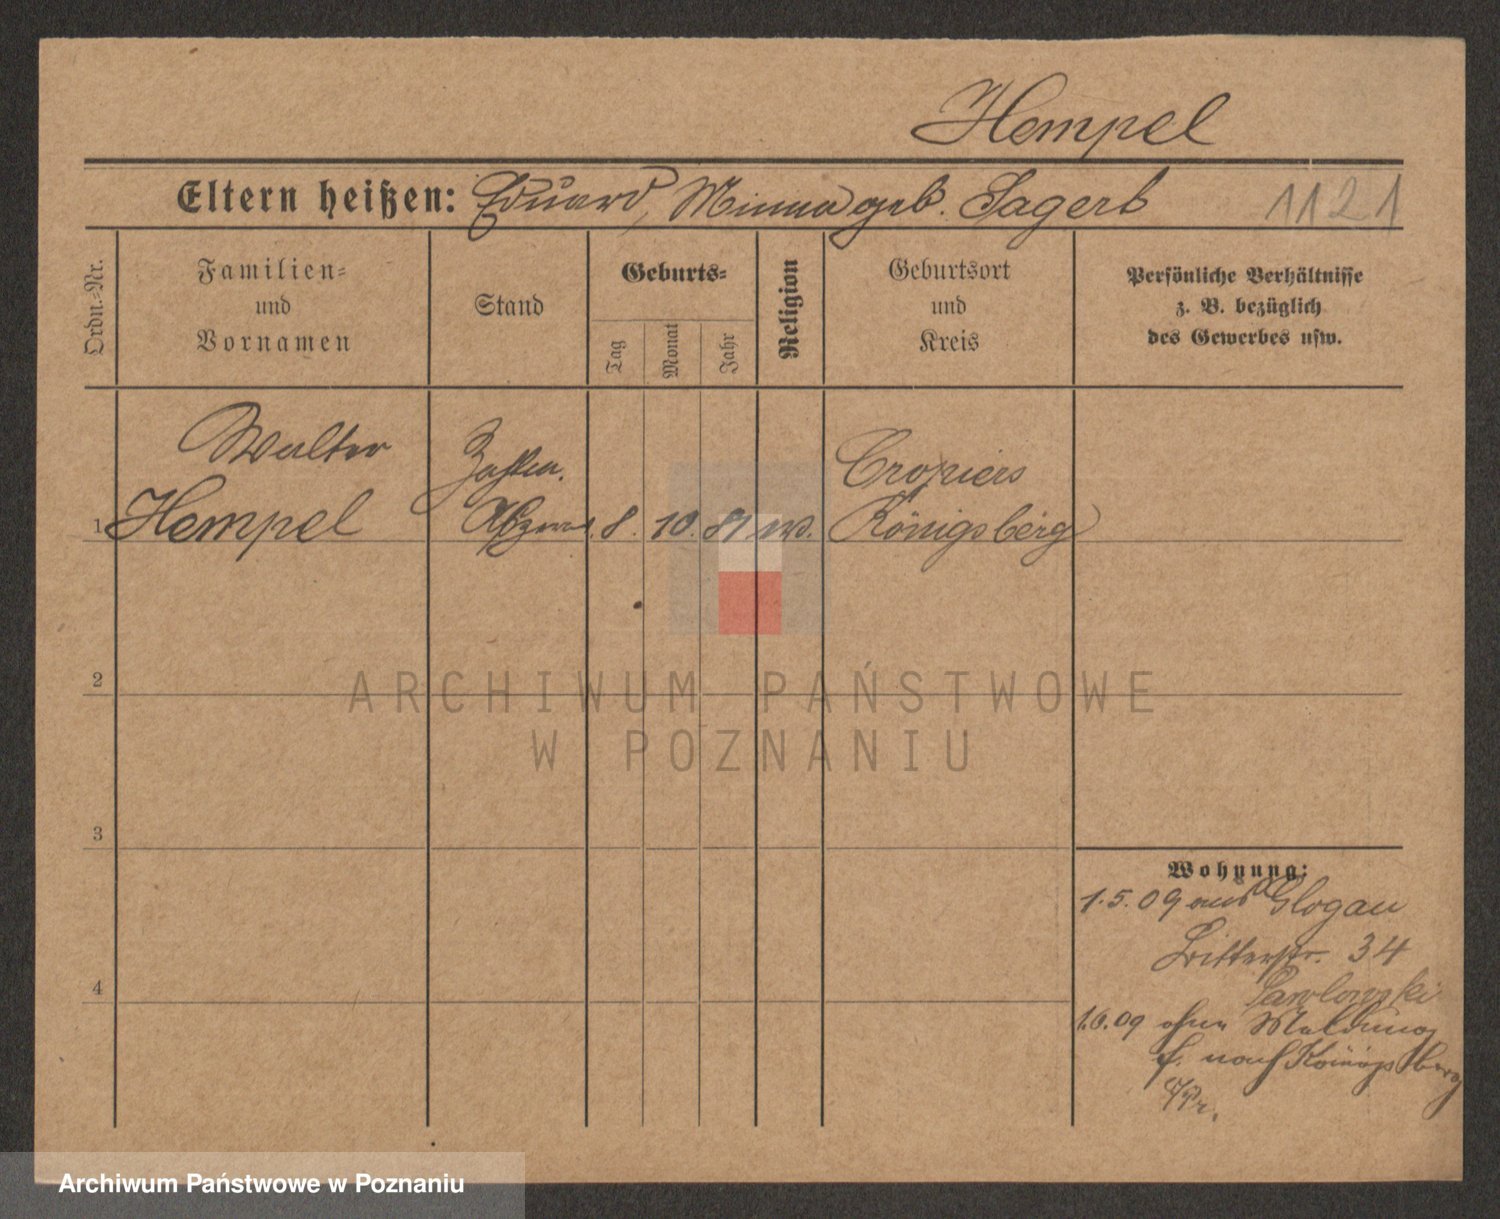 Hempel
Eltern heißen: Eduard, Minna geb. Sagert
1121
Ordn.-Nr.
Familien-
und
Vornamen
Stand
Geburts-
Tag
Monat
Jahr
Religion
Geburtsort
und
Kreis
Persönliche Verhältnisse
z. B. bezüglich
des Gewerbes usw.
Walter
Hempel
8. 10. 81
Königsberg
1
2
3
4
Wohnung:
1.5.09 aus Glogau
Ritterstr. 34
Pawlowski
1.6.09 ohne Meldung
f. nach Königsberg
i/Pr.
ARCHIWUM PAŃSTWOWE
W POZNANIU
Archiwum Państwowe w Poznaniu